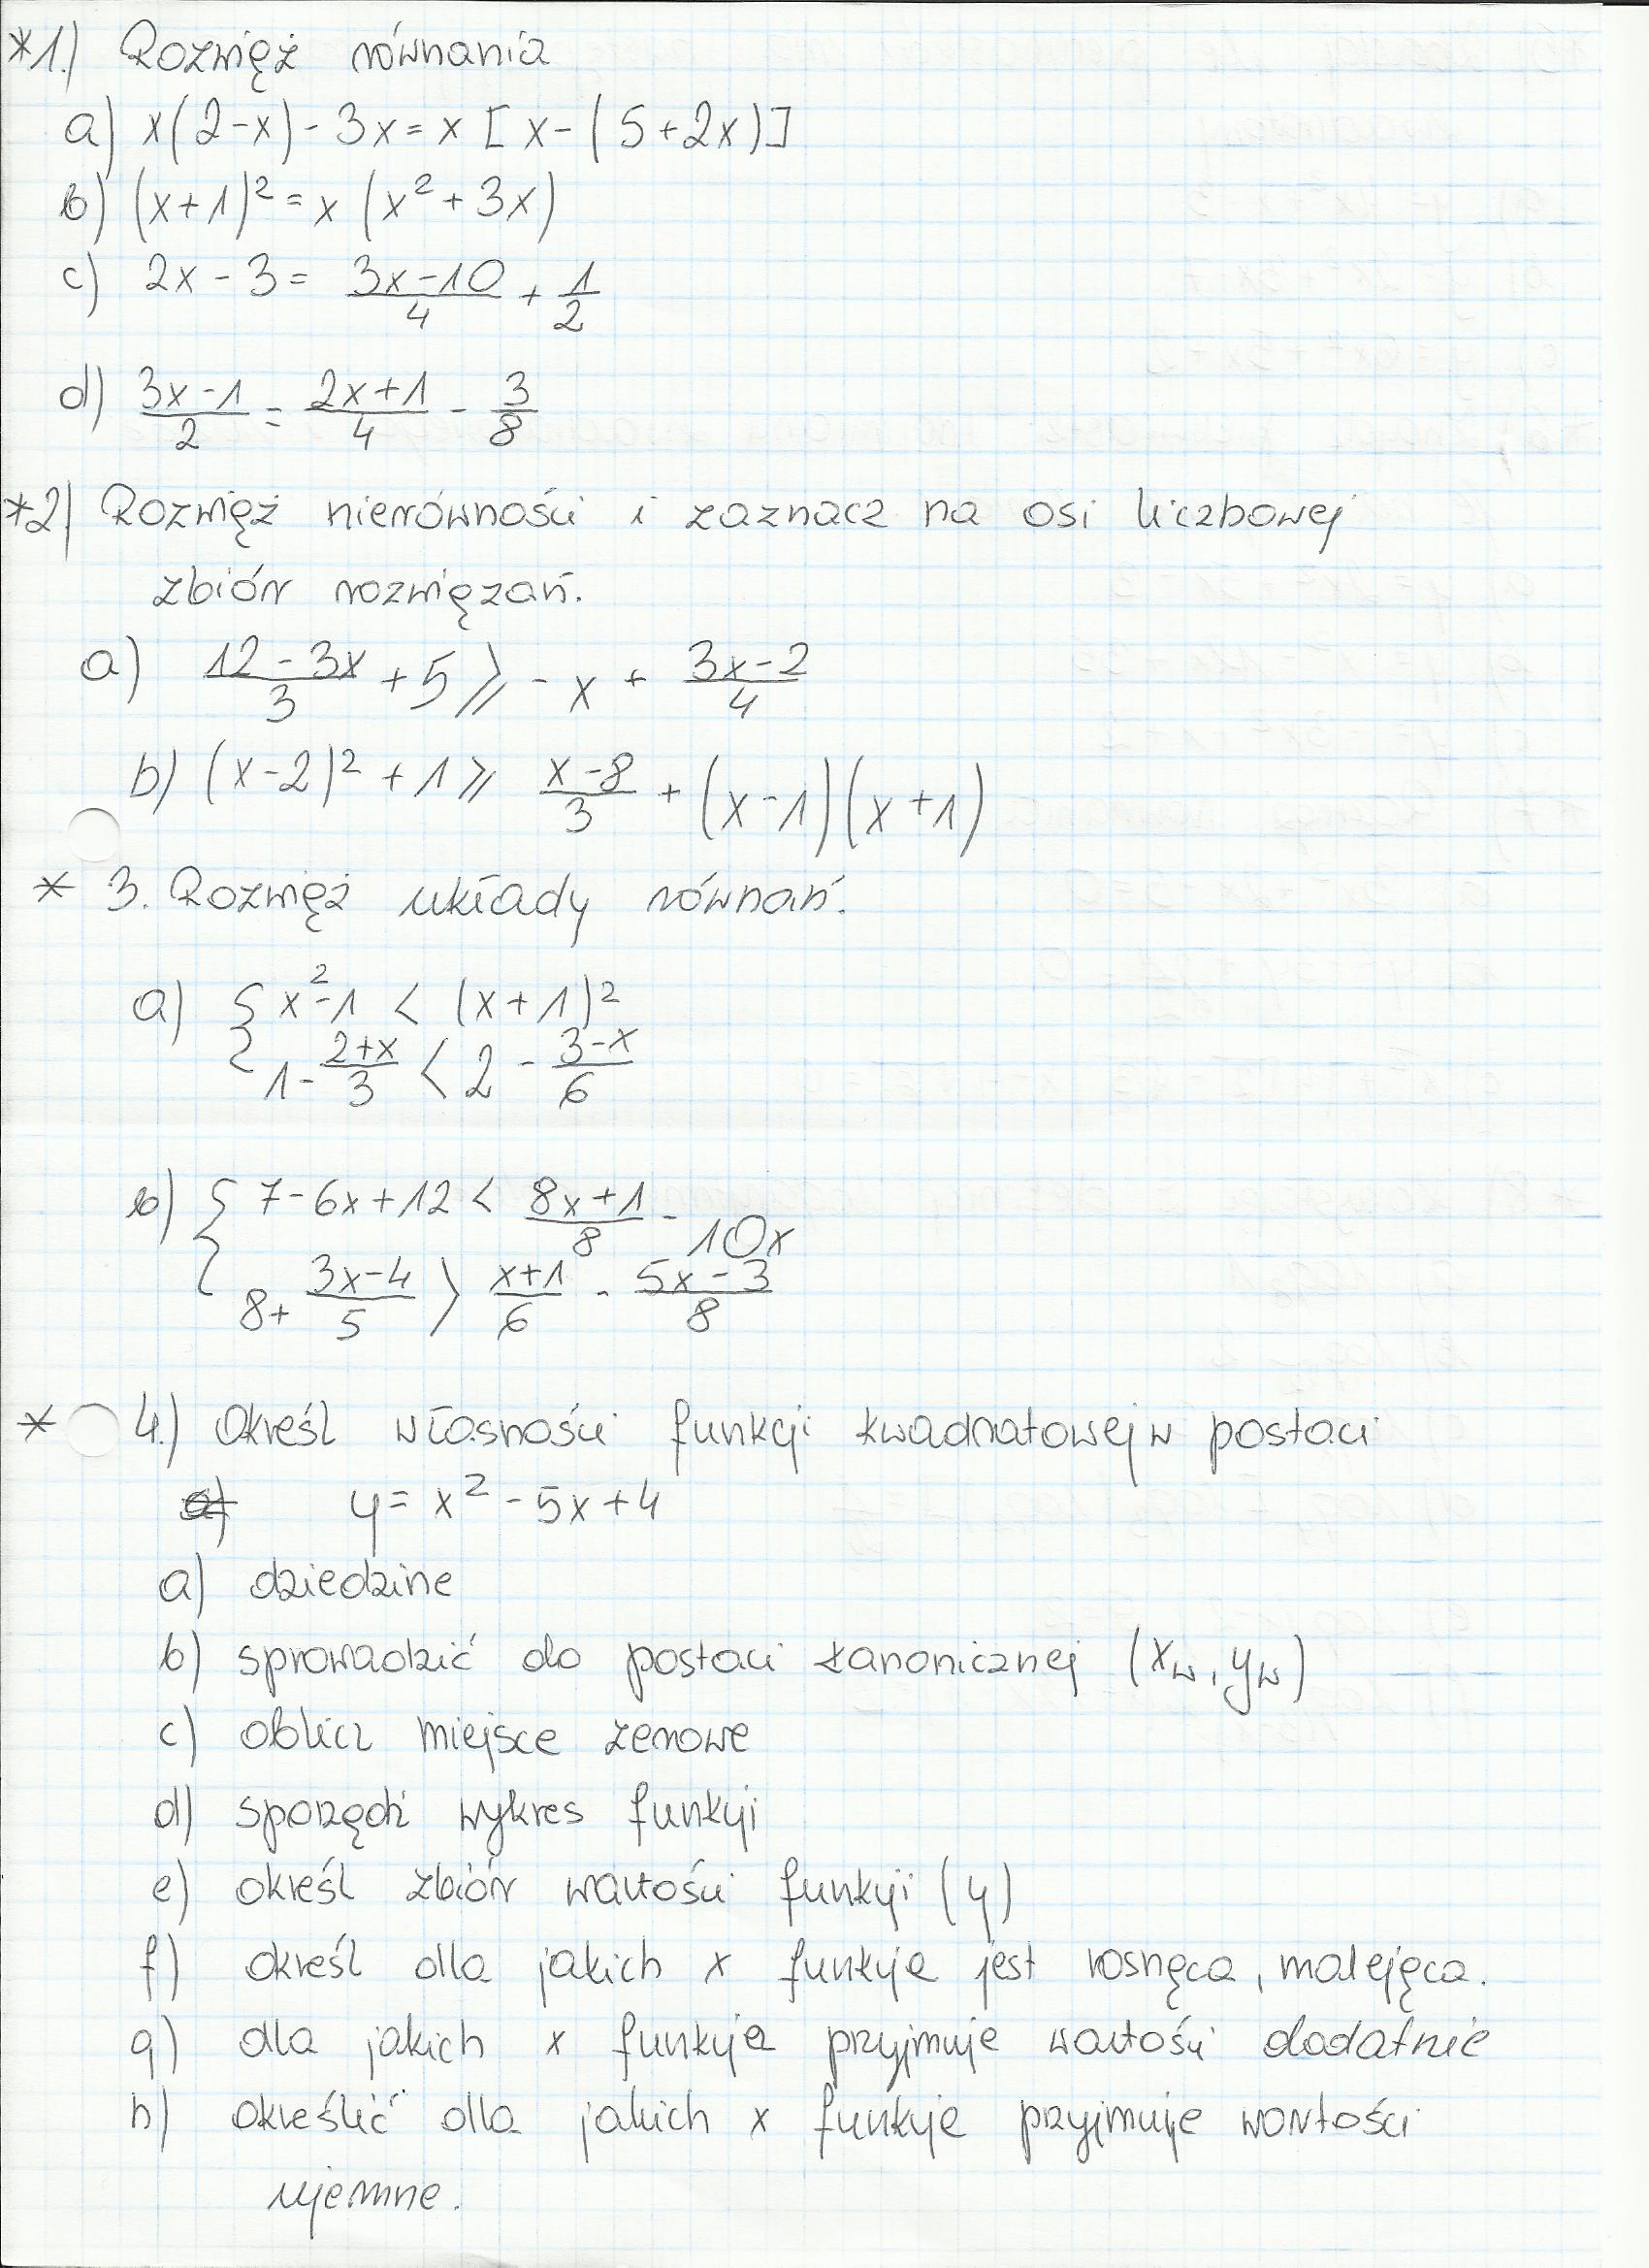 *1.) Rozwięż równania
a) x(2-x)-3x=x[x-(5+2x)]
b) (x+1)²=x(x²+3x)
c) 2x-3= (3x-10)/4 + 1/2
d) (3x-1)/2 = (2x+1)/4 - 3/8
*2) Rozwięż nierówności i zaznacz na osi liczbowej
zbiór rozwięzań.
a) (12-3x)/3 +5 ⩾ -x + (3x-2)/4
b) (x-2)²+1⩾ (x-8)/3 + (x-1)(x+1)
* 3. Rozwięż układy równań.
a) { x²-1 < (x+1)²
1- (2+x)/3 < 2 - (3-x)/6
b) { 7-6x+12 < (8x+1)/8 - 10x
8+ (3x-4)/5 > (x+1)/6 - (5x-3)/8
* 4.) Określ własności funkcji kwadratowej w postaci
y= x²-5x+4
a) dziedzine
b) sprowadzić do postaci kanonicznej (xw, yw)
c) oblicz miejsce zerowe
d) sporzędź wykres funkcji
e) określ zbiór wartości funkcji (y)
f) określ dla jakich x funkcje jest rosnęca, malejęca.
g) dla jakich x funkcje przyjmuje wartości dodatnie
h) określić dla jakich x funkcje przyjmuje wartości
ujemne.